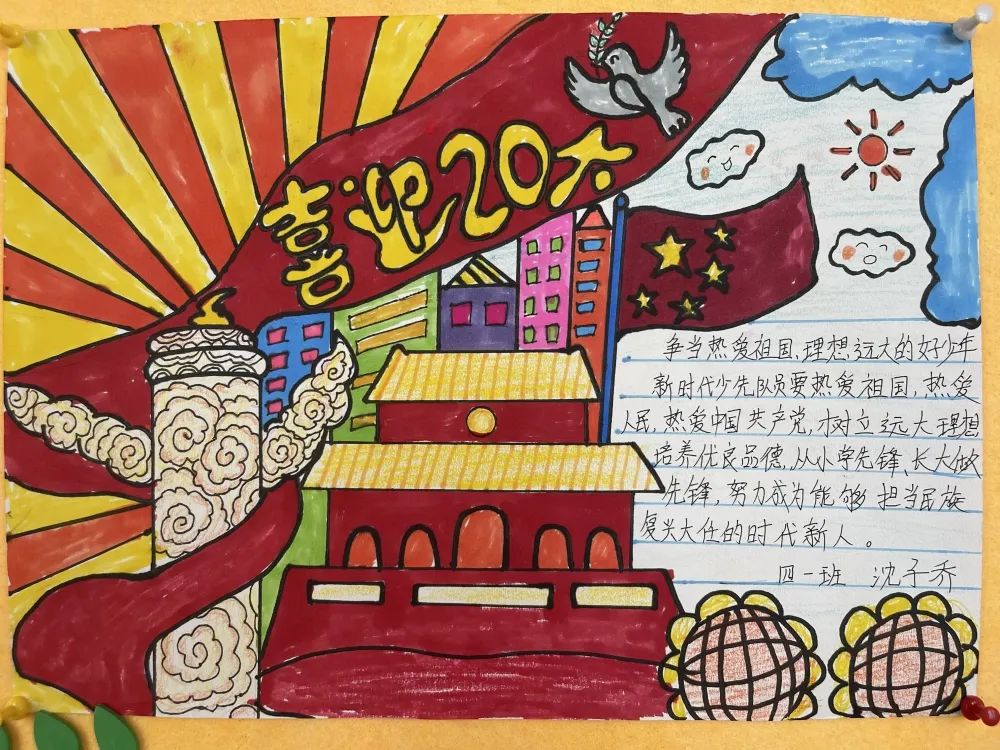 喜迎20大
争当热爱祖国、理想远大的好少年
新时代少先队员要热爱祖国,热爱
人民,热爱中国共产党,树立远大理想
培养优良品德,从小学先锋、长大做
先锋,努力成为能够担当民族
复兴大任的时代新人。
四一班 沈子乔